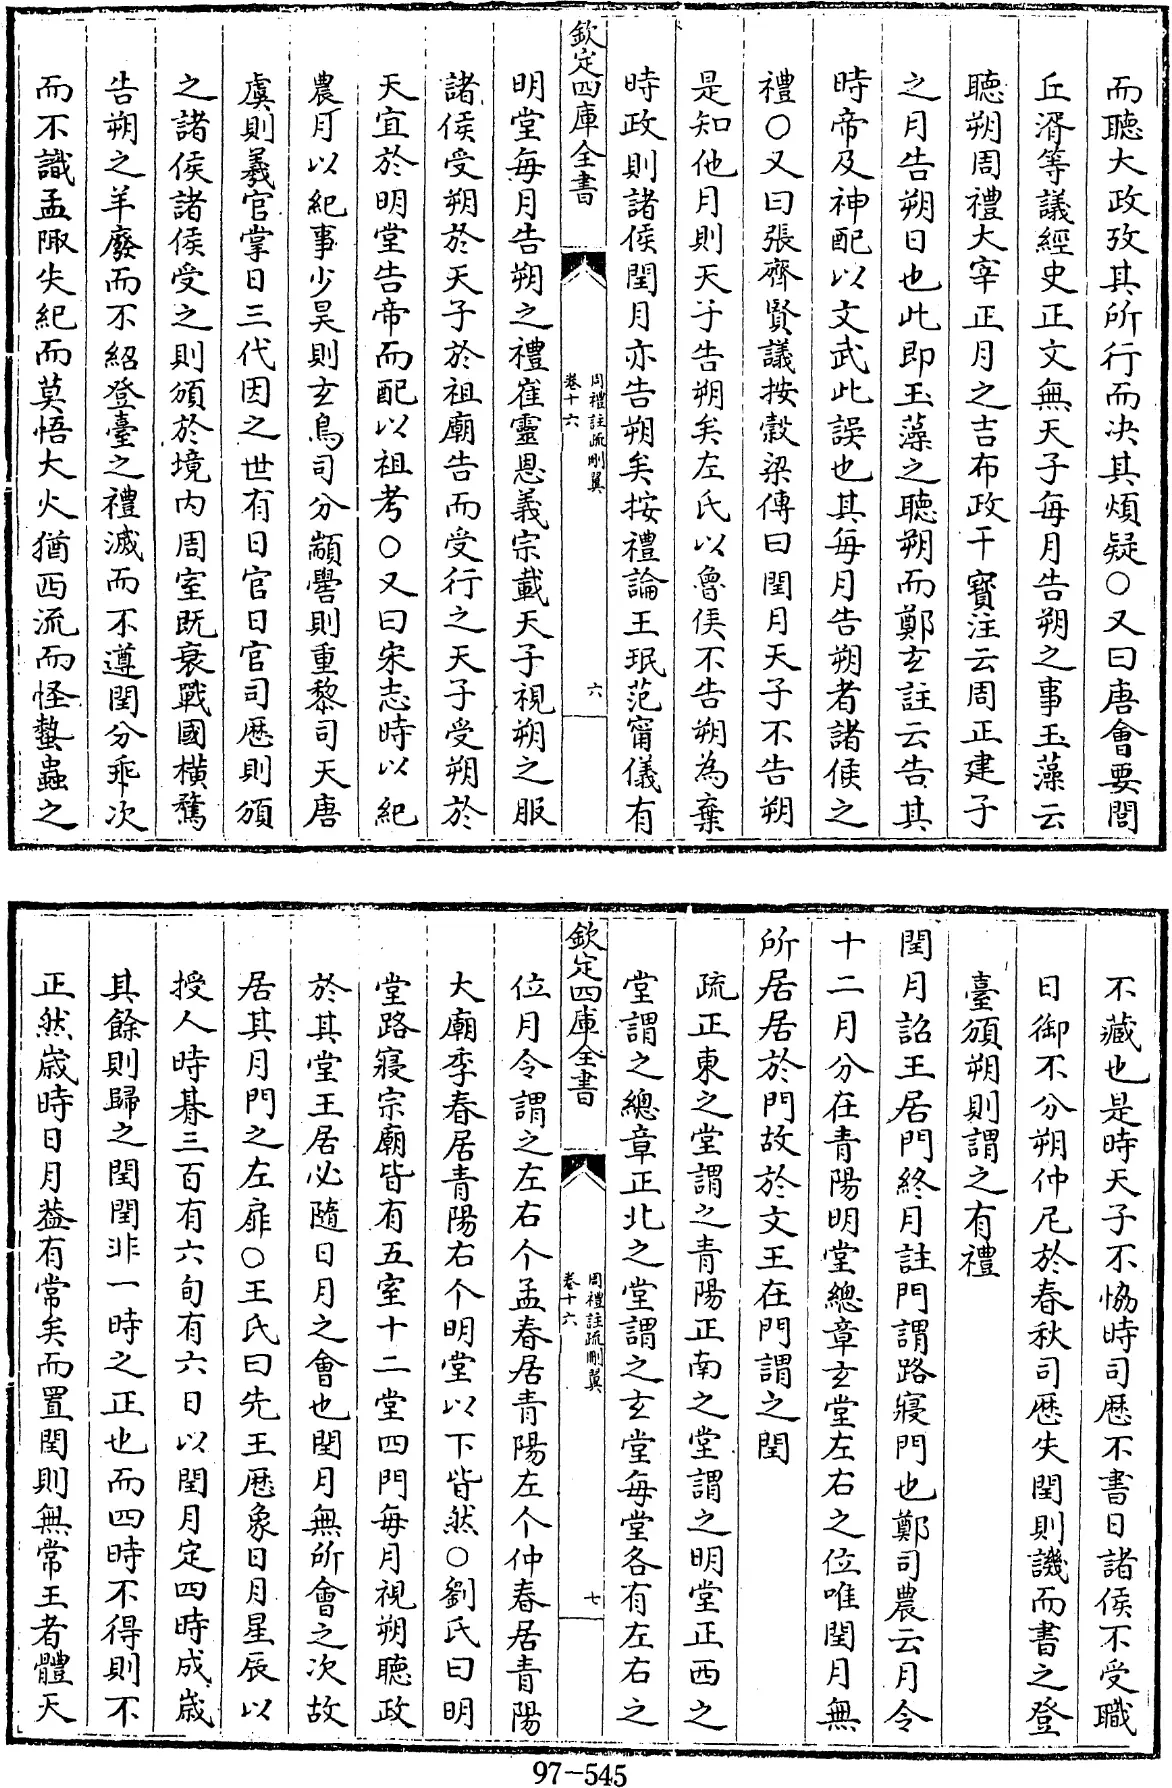 而聽大政攷其所行而决其煩疑○又曰唐會要閭
丘湑等議經史正文無天子每月告朔之事玉藻云
聽朔周禮大宰正月之吉布政干寳注云周正建子
之月告朔日也此即玉藻之聽朔而鄭玄註云告其
時帝及神配以文武此誤也其每月告朔者諸侯之
禮○又曰張齊賢議按穀梁傳曰閏月天子不告朔
是知他月則天子告朔矣左氏以魯侯不告朔為棄
時政則諸侯閏月亦告朔矣按禮論王珉范甯儀有
欽定四庫全書
周禮註疏刪翼
卷十六
六
明堂每月告朔之禮崔靈恩義宗載天子視朔之服
諸侯受朔於天子於祖廟告而受行之天子受朔於
天宜於明堂告帝而配以祖考○又曰宋志時以紀
農月以紀事少昊則玄鳥司分顓嚳則重黎司天唐
虞則羲官掌日三代因之世有日官日官司厯則頒
之諸侯諸侯受之則頒於境内周室既衰戰國橫騖
告朔之羊廢而不紹登臺之禮滅而不遵閏分乖次
而不識孟陬失紀而莫悟大火猶西流而怪蟄蟲之
不藏也是時天子不恊時司厯不書日諸侯不受職
日御不分朔仲尼於春秋司厯失閏則譏而書之登
臺頒朔則謂之有禮
閏月詔王居門終月註門謂路寢門也鄭司農云月令
十二月分在青陽明堂總章玄堂左右之位唯閏月無
所居居於門故於文王在門謂之閏
疏正東之堂謂之青陽正南之堂謂之明堂正西之
堂謂之總章正北之堂謂之玄堂每堂各有左右之
欽定四庫全書
周禮註疏刪翼
卷十六
七
位月令謂之左右个孟春居青陽左个仲春居青陽
大廟季春居青陽右个明堂以下皆然○劉氏曰明
堂路寢宗廟皆有五室十二堂四門每月視朔聽政
於其堂王居必隨日月之會也閏月無所會之次故
居其月門之左扉○王氏曰先王厯象日月星辰以
授人時朞三百有六旬有六日以閏月定四時成歲
其餘則歸之閏閏非一時之正也而四時不得則不
正然歲時日月葢有常矣而置閏則無常王者體天
97-545